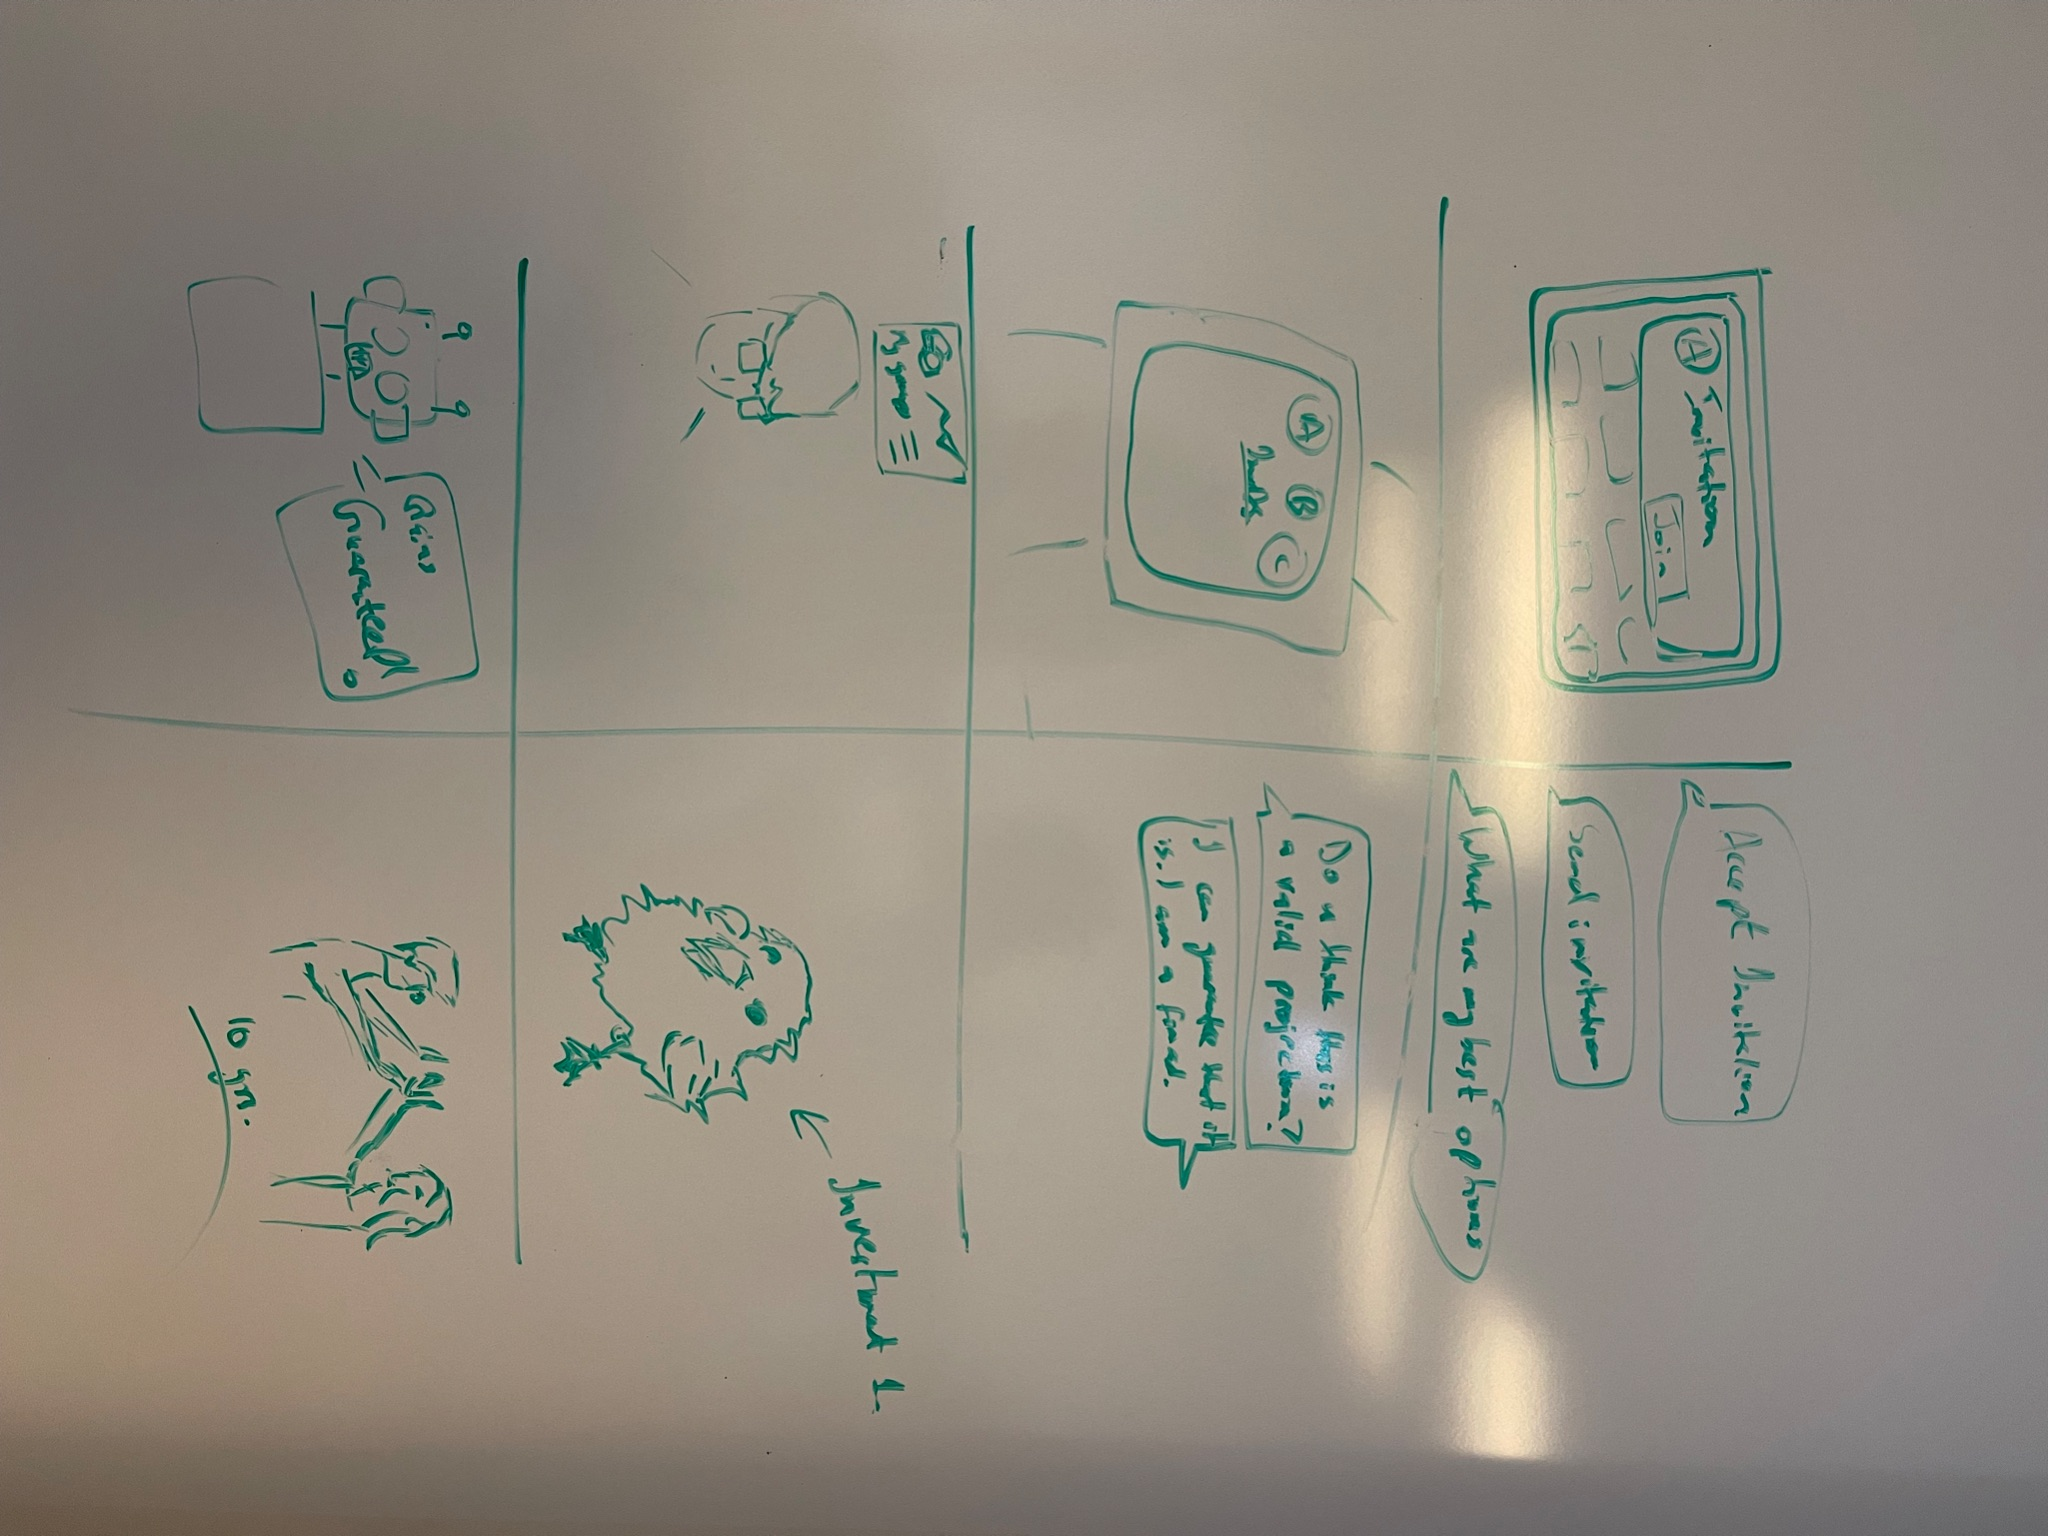 A Invitation
Join
Accept Invitation
Send invitation
What are my best options
A B C
Do u think this is
a valid projection?
I can guarantee that it
is. I am a
Investment 1.
Gains
Guaranteed
10 yrs.